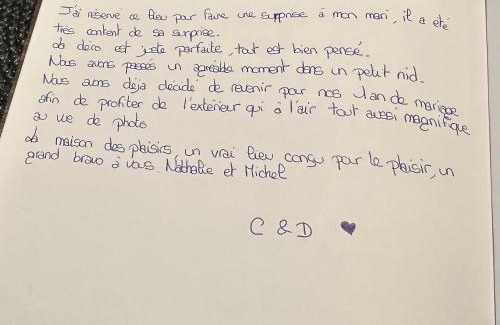 J'ai réservé ce lieu pour faire une surprise à mon mari, il a été
très content de sa surprise.
La déco est juste parfaite, tout est bien pensé.
Nous avons passés un agréable moment dans un petit nid.
Nous avons déja décidé de revenir pour nos 1 an de mariage
afin de profiter de l'extérieur qui à l'air tout aussi magnifique
au vue de photo
La maison des plaisirs, un vrai lieu conçu pour le plaisir, un
grand bravo à vous. Nathalie et Michel
C & D ♥